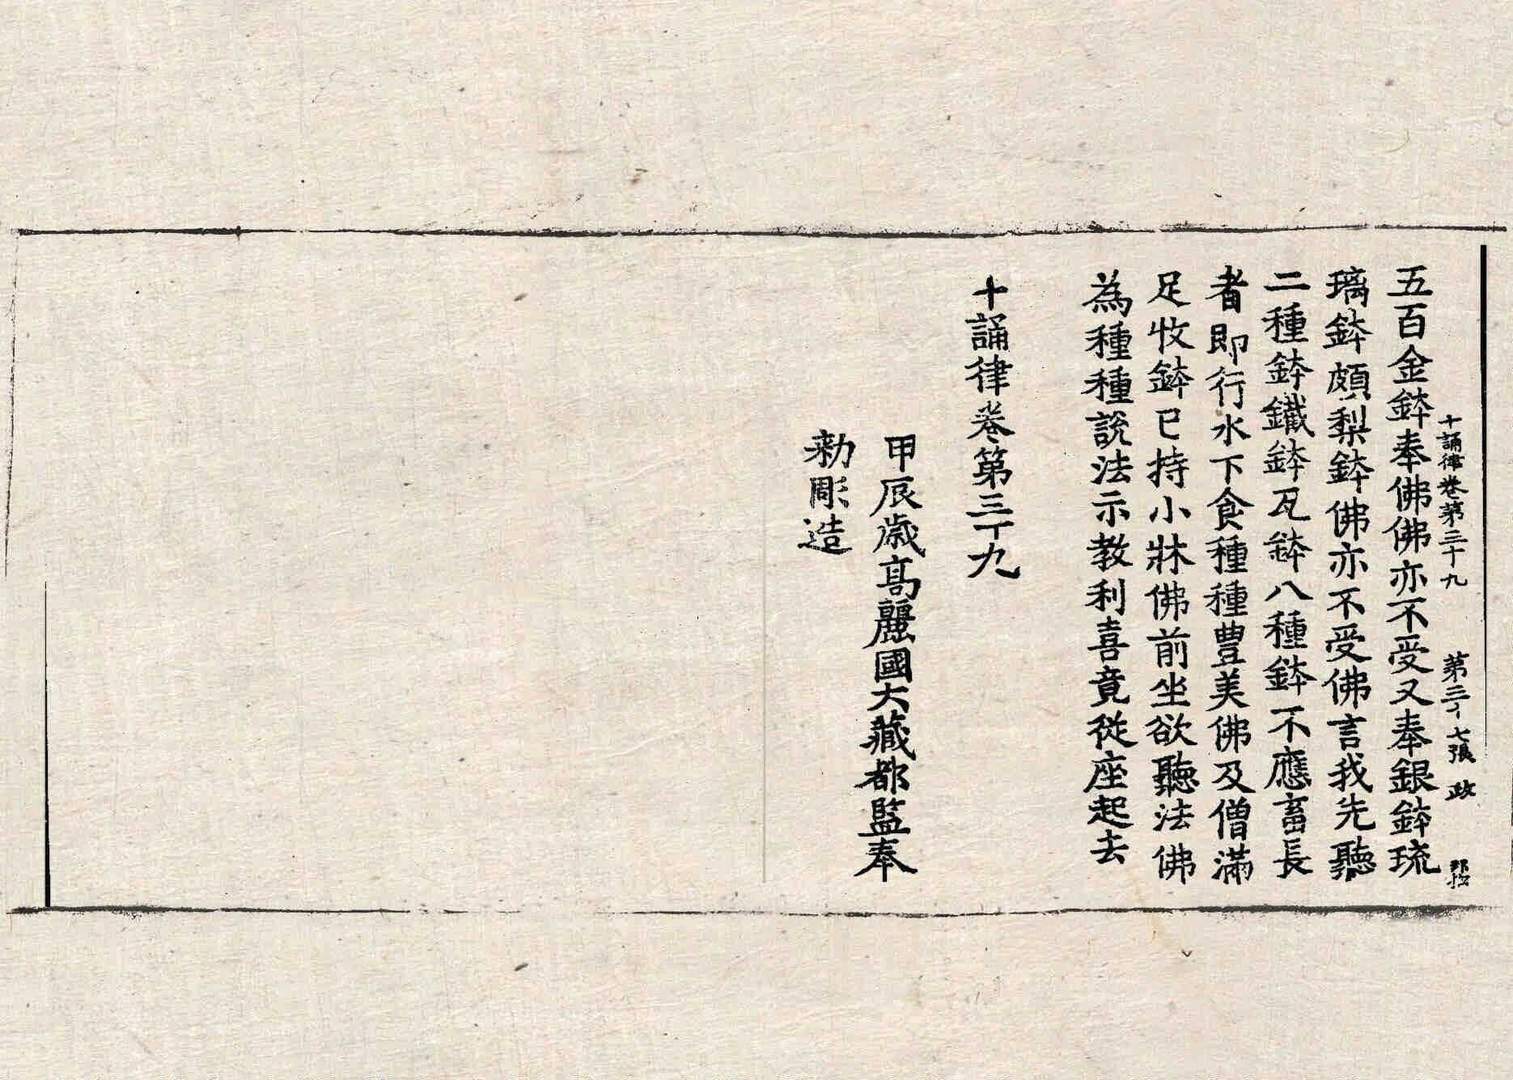 十誦律卷第三十九 第三十七張 政
五百金鉢奉佛佛亦不受又奉銀鉢琉
璃鉢頗梨鉢佛亦不受佛言我先聽
二種鉢鐵鉢瓦鉢八種鉢不應畜長
者即行水下食種種豊美佛及僧滿
足收鉢已持小牀佛前坐欲聽法佛
為種種說法示教利喜竟從座起去
十誦律卷第三十九
甲辰歲高麗國大藏都監奉
勑彫造